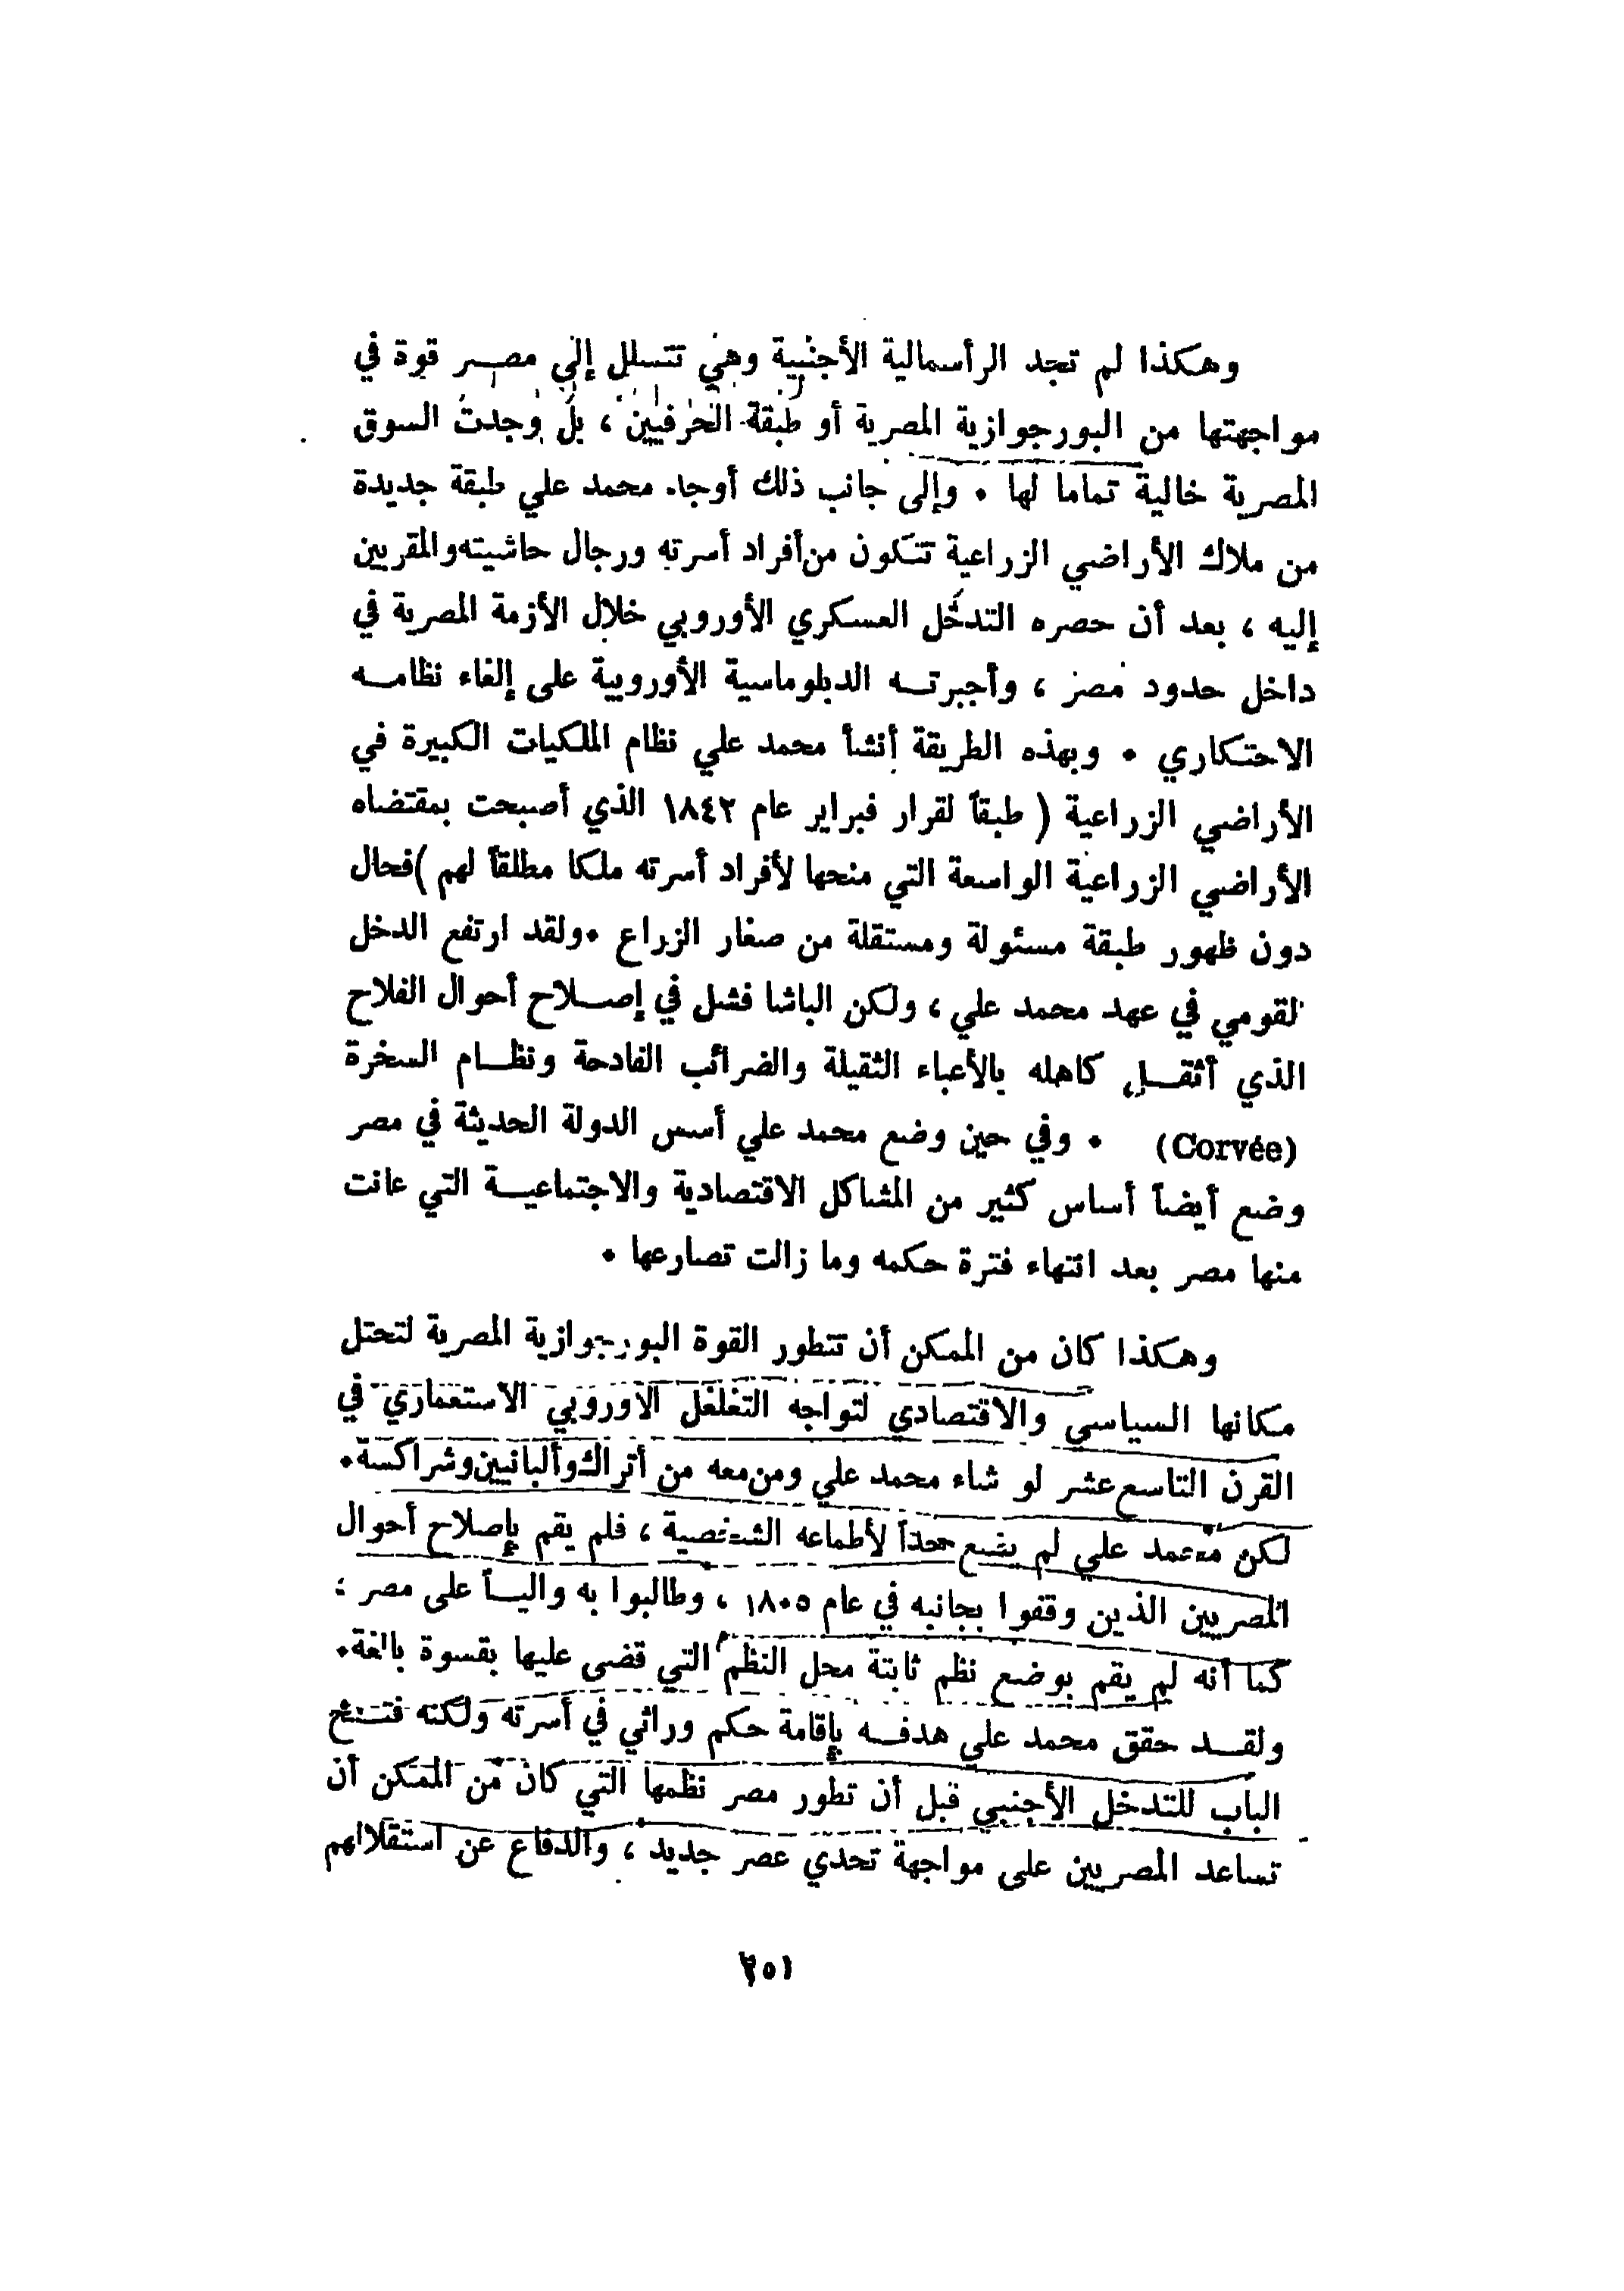 وهكذا لم تجد الرأسمالية الأجنبية وهي تتسلل إلى مصر قوة في
مواجهتها من البورجوازية المصرية أو طبقة الحرفيين ، بل وجدت السوق
المصرية خالية تماما لها . وإلى جانب ذلك أوجد محمد علي طبقة جديدة
من ملاك الأراضي الزراعية تتكون من أفراد أسرته ورجال حاشيته والمقربين
إليه ، بعد أن حصره التدخل العسكري الأوروبي خلال الأزمة المصرية في
داخل حدود مصر ، وأجبرته الدبلوماسية الأوروبية على إلغاء نظامه
الاحتكاري . وبهذه الطريقة أنشأ محمد علي نظام الملكيات الكبيرة في
الأراضي الزراعية ( طبقاً لقرار فبراير عام ١٨٤٢ الذي أصبحت بمقتضاه
الأراضي الزراعية الواسعة التي منحها لأفراد أسرته ملكا مطلقاً لهم )فحال
دون ظهور طبقة مسئولة ومستقلة من صغار الزراع .ولقد ارتفع الدخل
القومي في عهد محمد علي ، ولكن الباشا فشل في إصلاح أحوال الفلاح
الذي أثقل كاهله بالأعباء الثقيلة والضرائب الفادحة ونظام السخرة
(Corvée) . وفي حين وضع محمد علي أسس الدولة الحديثة في مصر
وضع أيضاً أساس كثير من المشاكل الاقتصادية والاجتماعية التي عانت
منها مصر بعد انتهاء فترة حكمه وما زالت تصارعها .
وهكذا كان من الممكن أن تتطور القوة البورجوازية المصرية لتحتل
مكانها السياسي والاقتصادي لتواجه التغلغل الأوروبي الاستعماري في
القرن التاسع عشر لو شاء محمد علي ومن معه من أتراك وألبانيين وشراكسة.
لكن محمد علي لم يضع حداً لأطماعه الشخصية ، فلم يقم بإصلاح أحوال
المصريين الذين وقفوا بجانبه في عام ١٨٠٥ ، وطالبوا به والياً على مصر ؛
كما أنه لم يقم بوضع نظم ثابتة محل النظم التي قضى عليها بقسوة بالغة.
ولقد حقق محمد علي هدفه بإقامة حكم وراثي في أسرته ولكنه فتح
الباب للتدخل الأجنبي قبل أن تطور مصر نظمها التي كان من الممكن أن
تساعد المصريين على مواجهة تحدي عصر جديد ، والدفاع عن استقلالهم
٢٥١